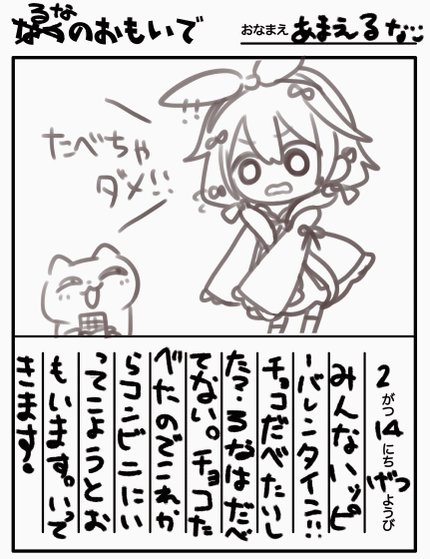 るなのおもいで
おなまえ あまえるな
!!
たべちゃ
ダメ!!
2がつ14にちげつようび
みんなハッピ
ーバレンタイン!!
チョコだべたいし
た?るなはたべ
てない。チョコた
べたのでこれか
らコンビニにい
ってこようとお
もいます。いって
きます!